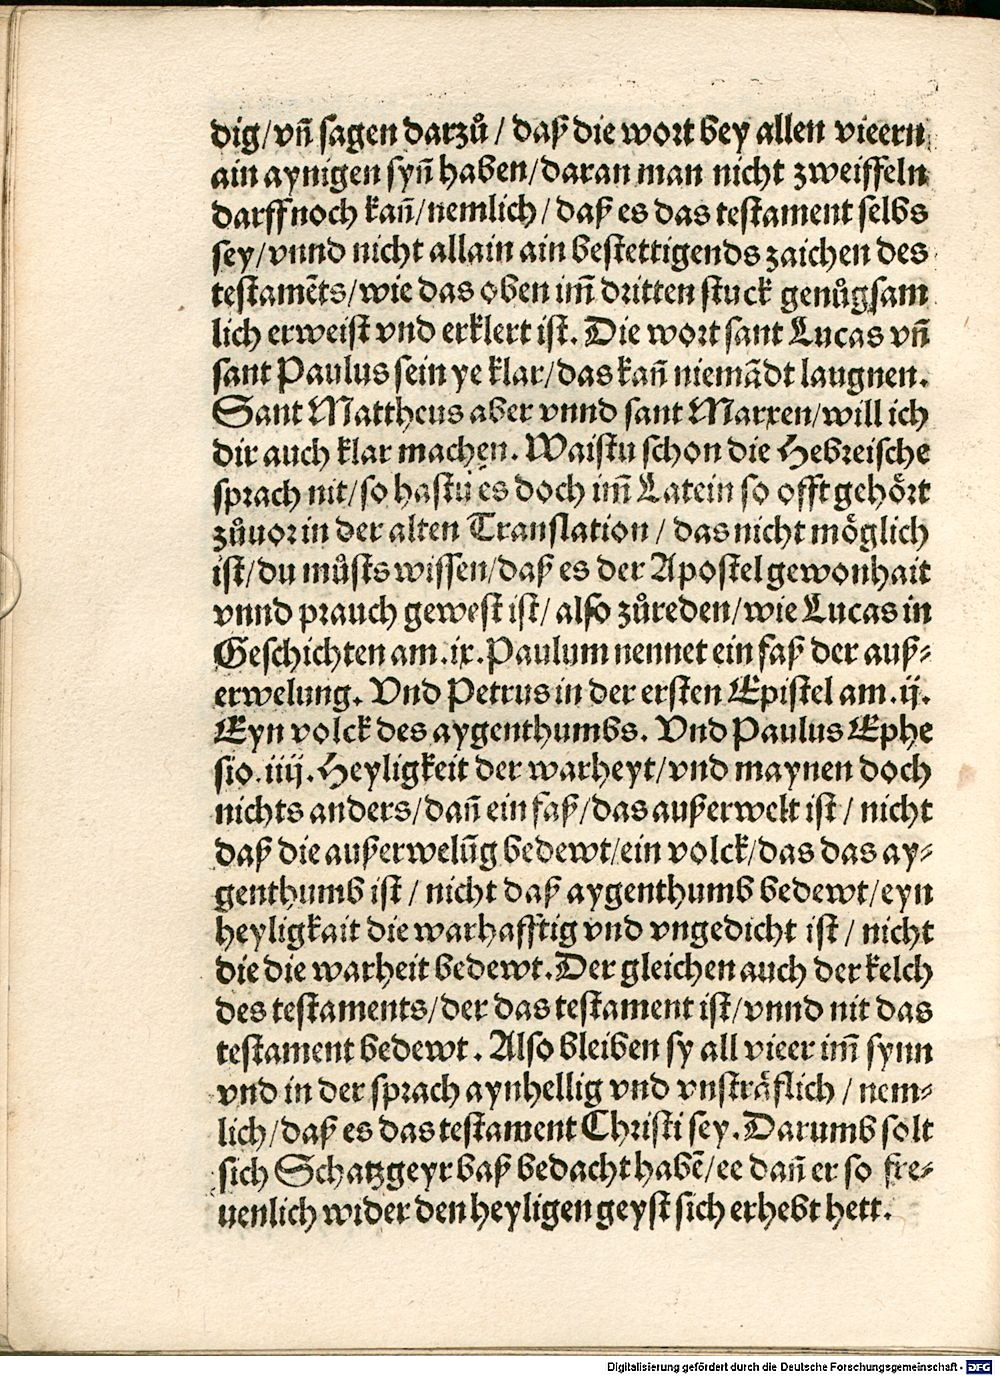 dig/ vñ sagen darzů / daß die wort bey allen vieern
ain aynigen syñ haben/ daran man nicht zweiffeln
darff noch kañ/ nemlich/ daß es das testament selbs
sey/ vnnd nicht allain ain bestettigends zaichen des
testamẽts/ wie das oben im̃ dritten stuck genůgsam
lich erweist vnd erklert ist. Die wort sant Lucas vñ
sant Paulus sein ye klar/ das kañ niemãdt laugnen.
Sant Mattheus aber vnnd sant Marxen/ will ich
dir auch klar machen. Waistu schon die Hebreische
sprach nit/ so hastu es doch im̃ Latein so offt gehört
zůuor in der alten Translation / das nicht möglich
ist/ du můsts wissen/ daß es der Apostel gewonhait
vnnd prauch gewest ist/ also zůreden/ wie Lucas in
Geschichten am .ix. Paulum nennet ein faß der auß⸗
erwelung. Vnd Petrus in der ersten Epistel am .ij.
Eyn volck des aygenthumbs. Vnd Paulus Ephe
sio. iiij. Heyligkeit der warheyt/ vnd maynen doch
nichts anders/ dañ ein faß/ das außerwelt ist / nicht
daß die außerwelũg bedewt/ ein volck/ das das ay⸗
genthumb ist / nicht daß aygenthumb bedewt/ eyn
heyligkait die warhafftig vnd vngedicht ist / nicht
die die warheit bedewt. Der gleichen auch der kelch
des testaments/ der das testament ist/ vnnd nit das
testament bedewt. Also bleiben sy all vieer im̃ synn
vnd in der sprach aynhellig vnd vnsträflich / nem⸗
lich/ daß es das testament Christi sey. Darumb solt
sich Schatzgeyr baß bedacht habẽ/ ee dañ er so fre⸗
uenlich wider den heyligen geyst sich erhebt hett.
Digitalisierung gefördert durch die Deutsche Forschungsgemeinschaft - DFG